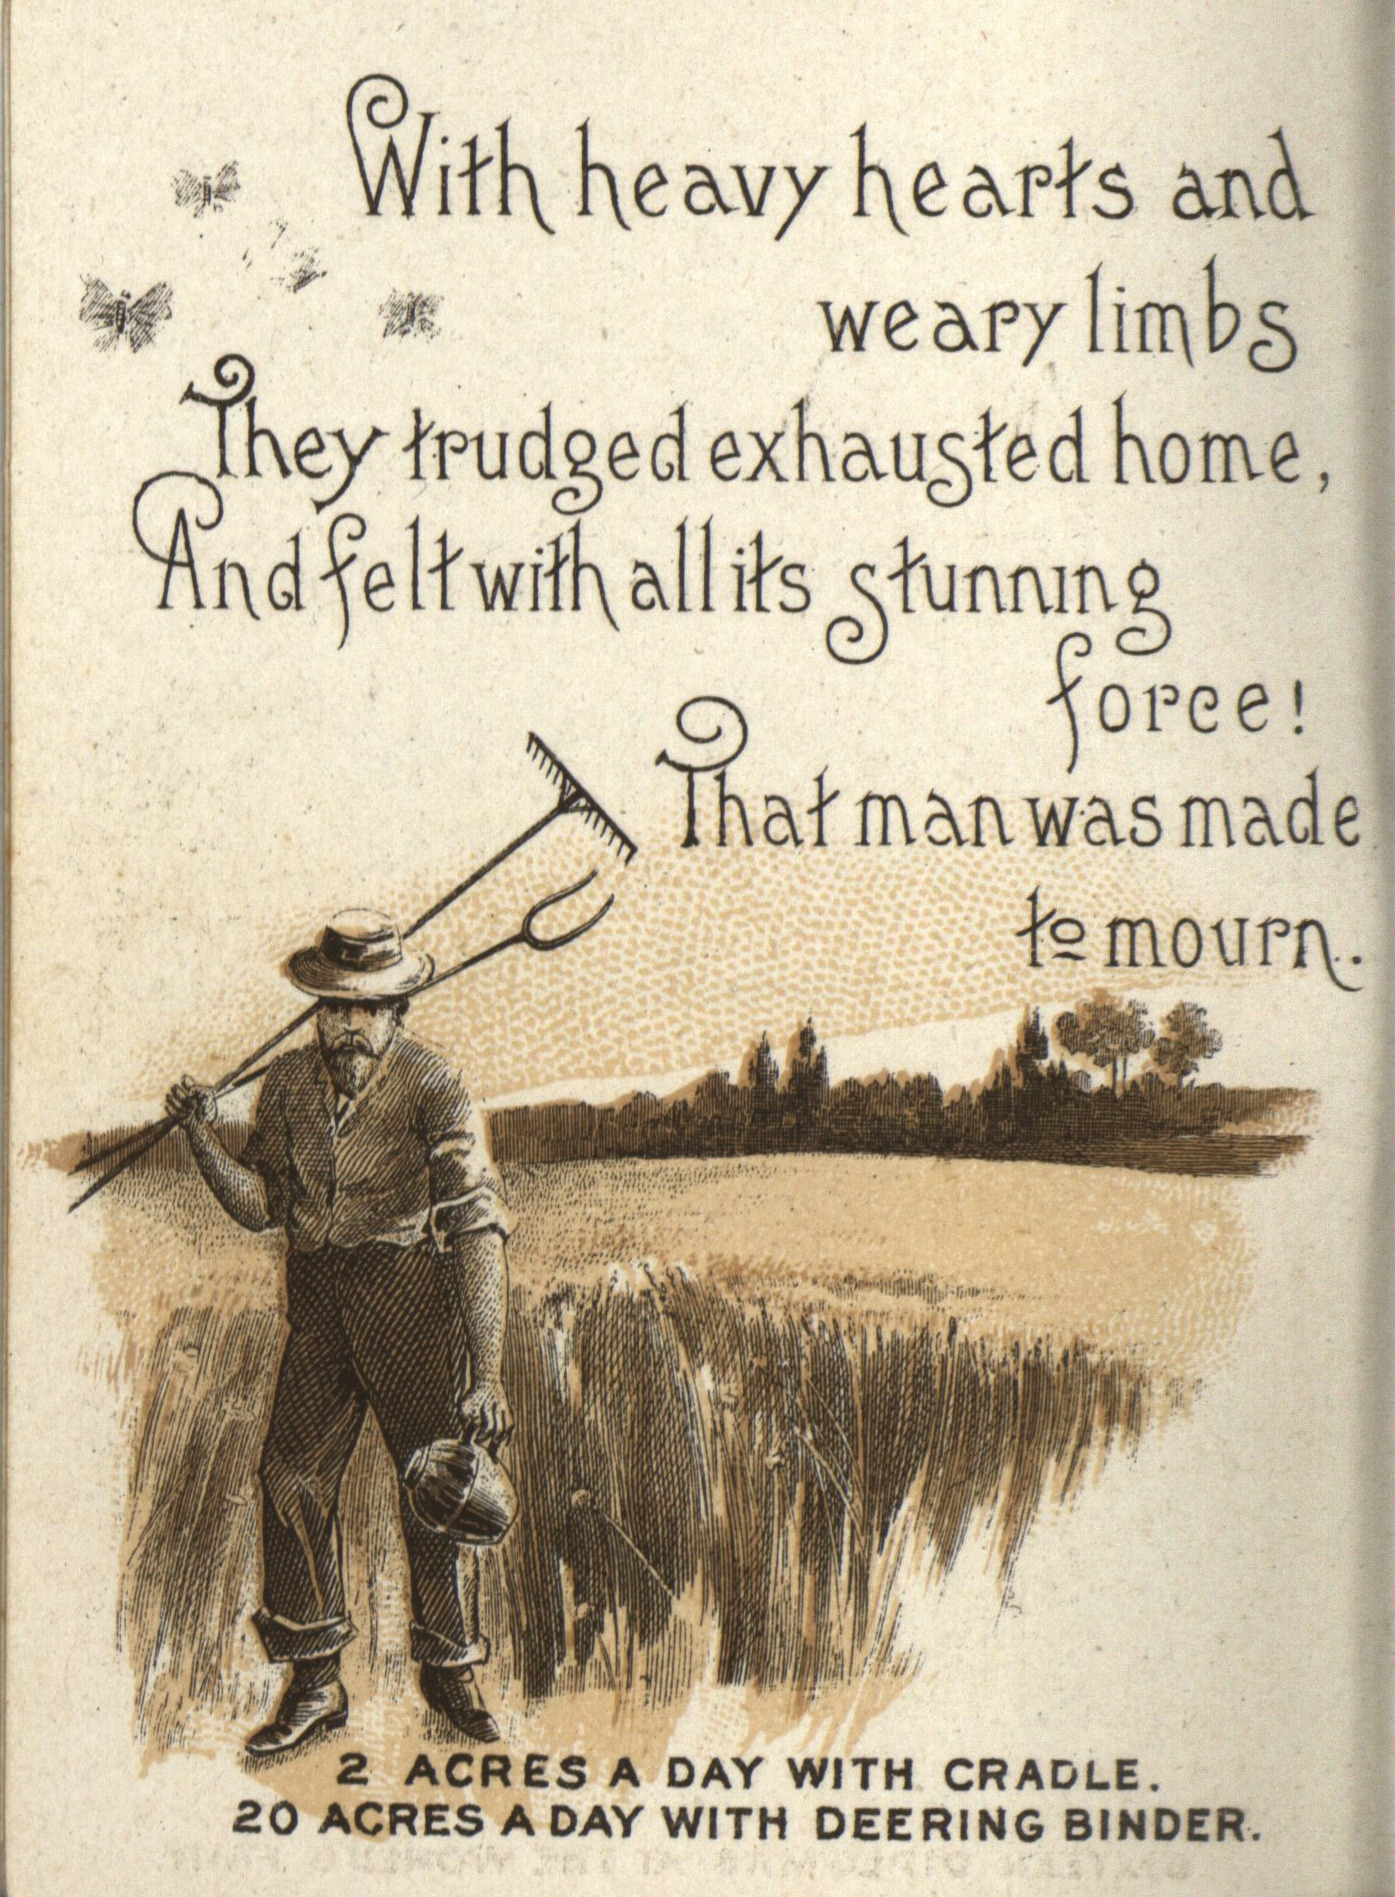 With heavy hearts and
weary limbs
They trudged exhausted home,
And felt with all its stunning
force!
That man was made
to mourn.
2 ACRES A DAY WITH CRADLE.
20 ACRES A DAY WITH DEERING BINDER.